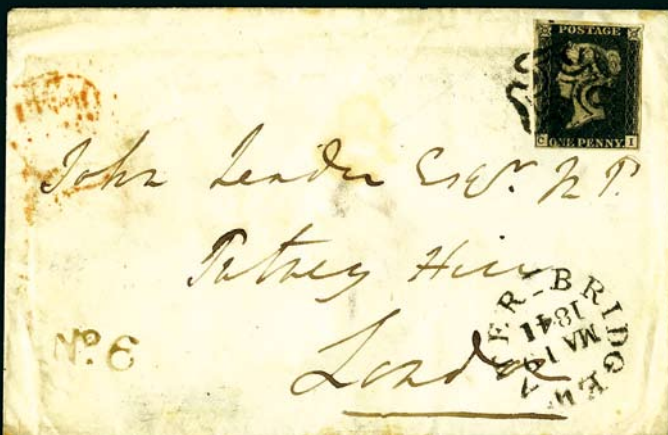 POSTAGE
C ONE PENNY I
John Leader Esqr. M.P.
Putney Hill
London
No. 6
BRIDGEWATER
MA 1
1841